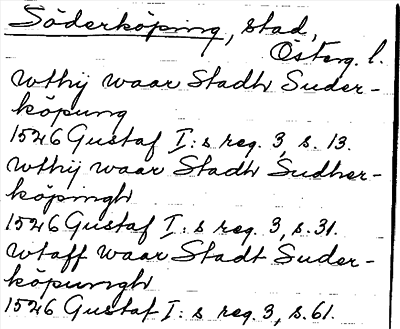 Söderköping, stad,
Österg. l.
wthij waar Stadh Suder-
köpung
1526 Gustaf I:s reg. 3, s. 13.
wthij waar Stadh Sudher-
köpingh
1526 Gustaf I:s reg. 3, s. 31.
wtaff waar Stadt Suder-
köpungh
1526 Gustaf I:s reg. 3, s. 61.